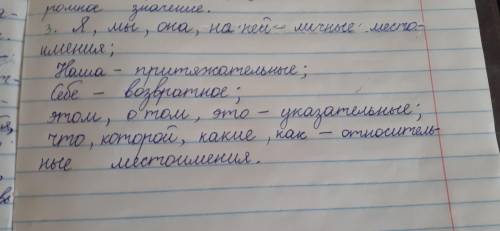 ромное значение.
3. Я, мы, она, на ней - личные место-
имения;
Наша - притяжательные;
Себе - возвратное;
этом, о том, это - указательные;
что, которой, какие, как - относитель-
ные местоимения.